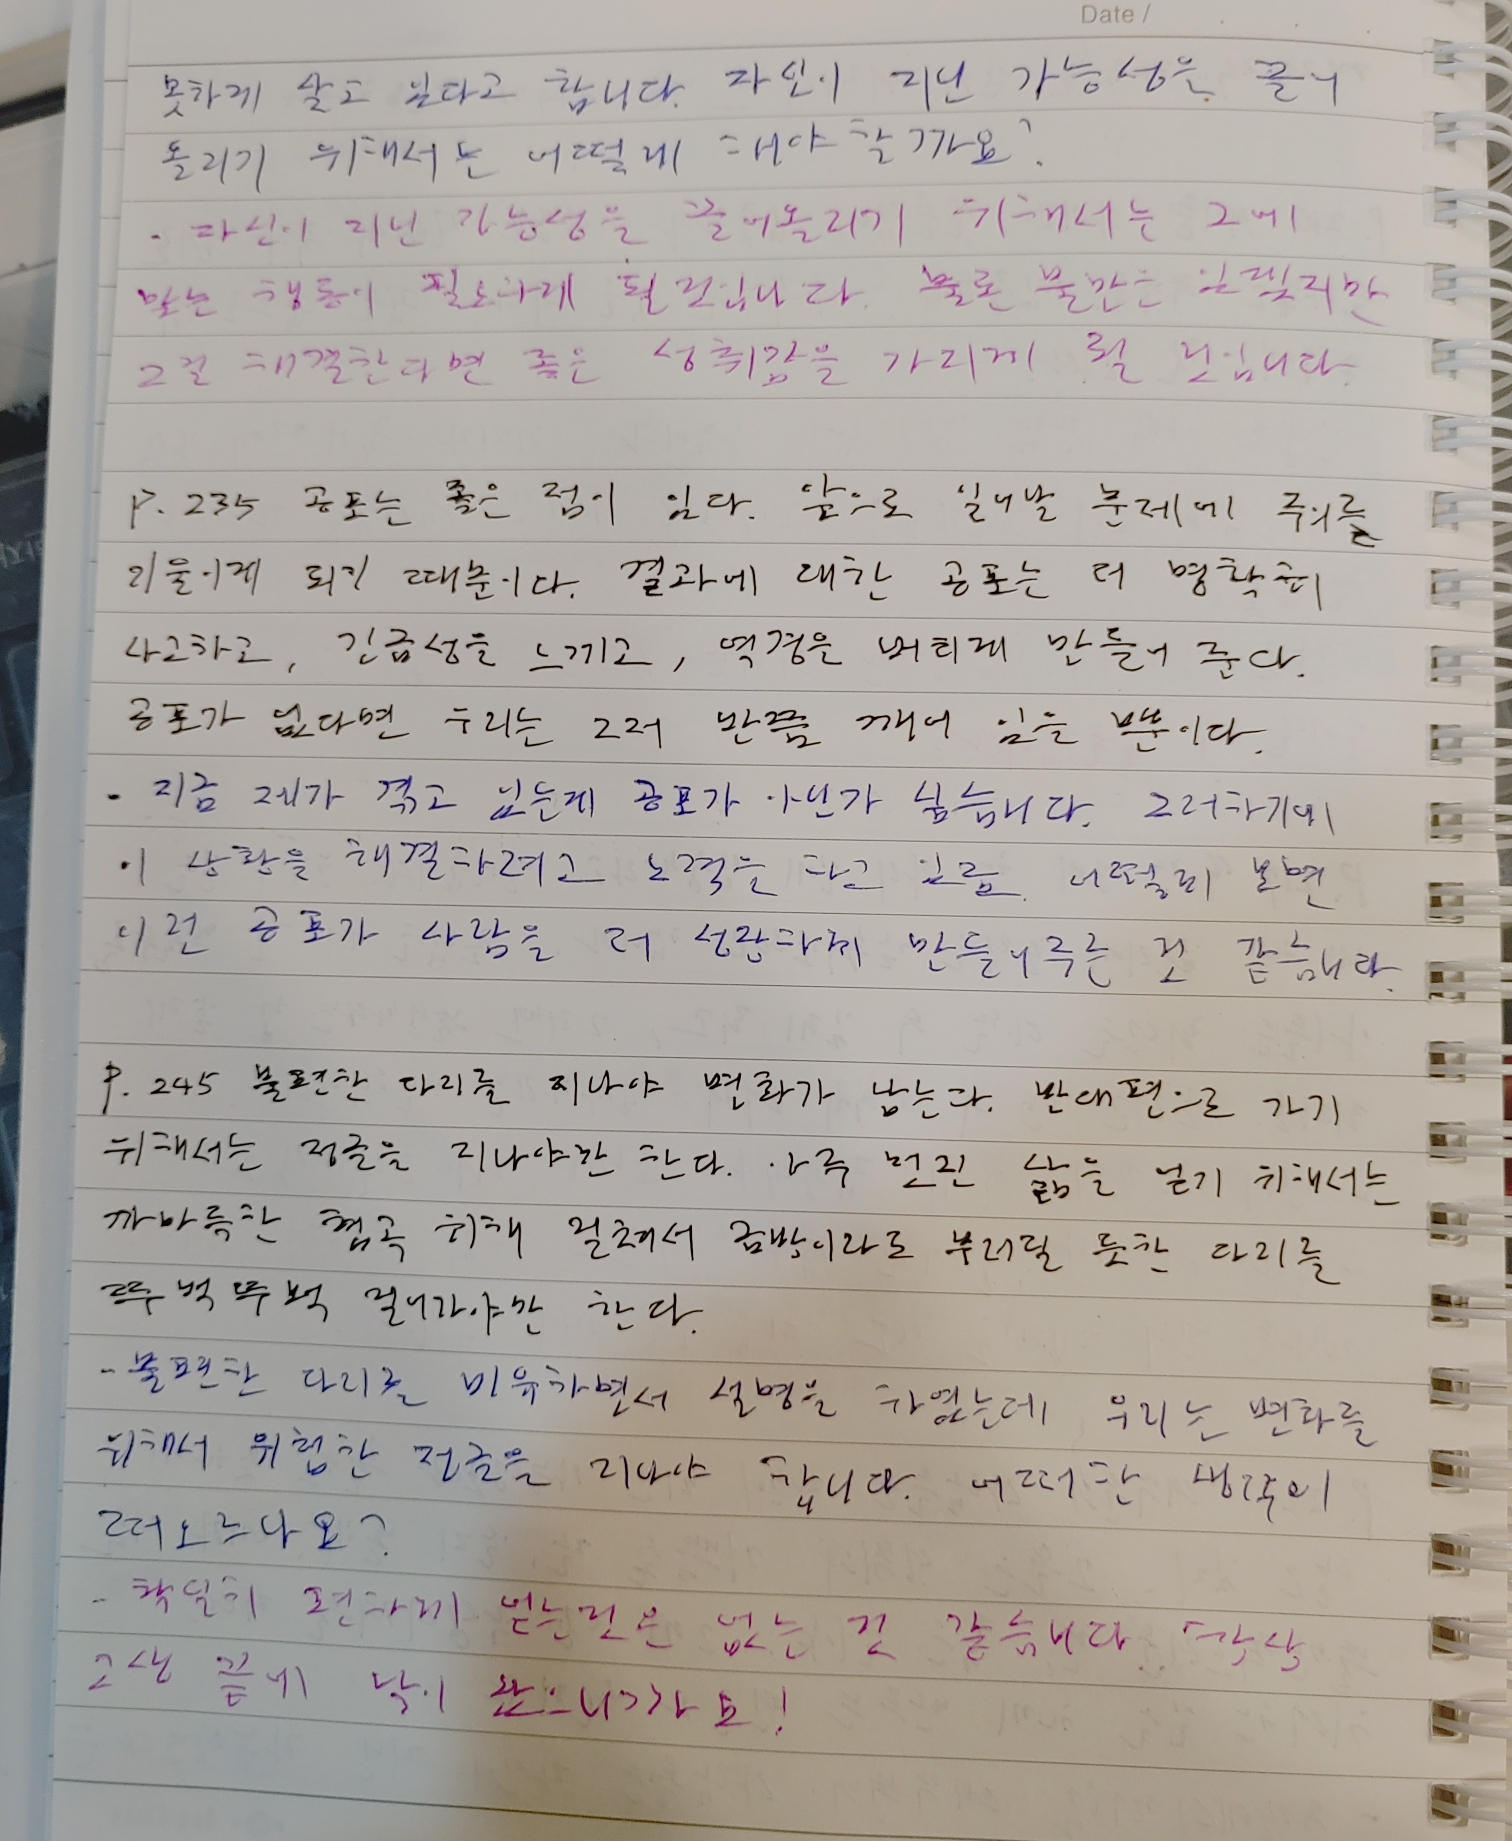 Date /
못하게 살고 있다고 합니다. 자신이 지닌 가능성을 끌어
올리기 위해서는 어떻게 해야 할까요?
- 자신이 지닌 가능성을 끌어올리기 위해서는 그에
맞는 행동이 필요하게 될 것입니다. 물론 불만은 있겠지만
그걸 해결한다면 좋은 성취감을 가지게 될 것입니다.
P. 235 공포는 좋은 점이 있다. 앞으로 일어날 문제에 주의를
기울이게 되기 때문이다. 결과에 대한 공포는 더 명확히
사고하고, 긴급성을 느끼고, 역경을 버티게 만들어 준다.
공포가 없다면 우리는 그저 반쯤 깨어 있을 뿐이다.
- 지금 제가 겪고 있는게 공포가 아닌가 싶습니다. 그러하기에
이 상황을 해결하려고 노력을 하고 있음. 어떻게 보면
이런 공포가 사람을 더 성장하게 만들어주는 것 같습니다.
P. 245 불편한 다리를 지나야 변화가 남는다. 반대편으로 가기
위해서는 정글을 지나야만 한다. 아주 멋진 삶을 얻기 위해서는
까마득한 협곡 위에 걸쳐서 금방이라도 부러질 듯한 다리를
뚜벅뚜벅 걸어가야만 한다.
- 불편한 다리로 비유하면서 설명을 하였는데 우리는 변화를
위해서 위험한 정글을 지나야 합니다. 어떠한 생각이
떠오르나요?
- 확실히 편하게 얻는것은 없는 것 같습니다. 항상
고생 끝에 낙이 왔으니까요!